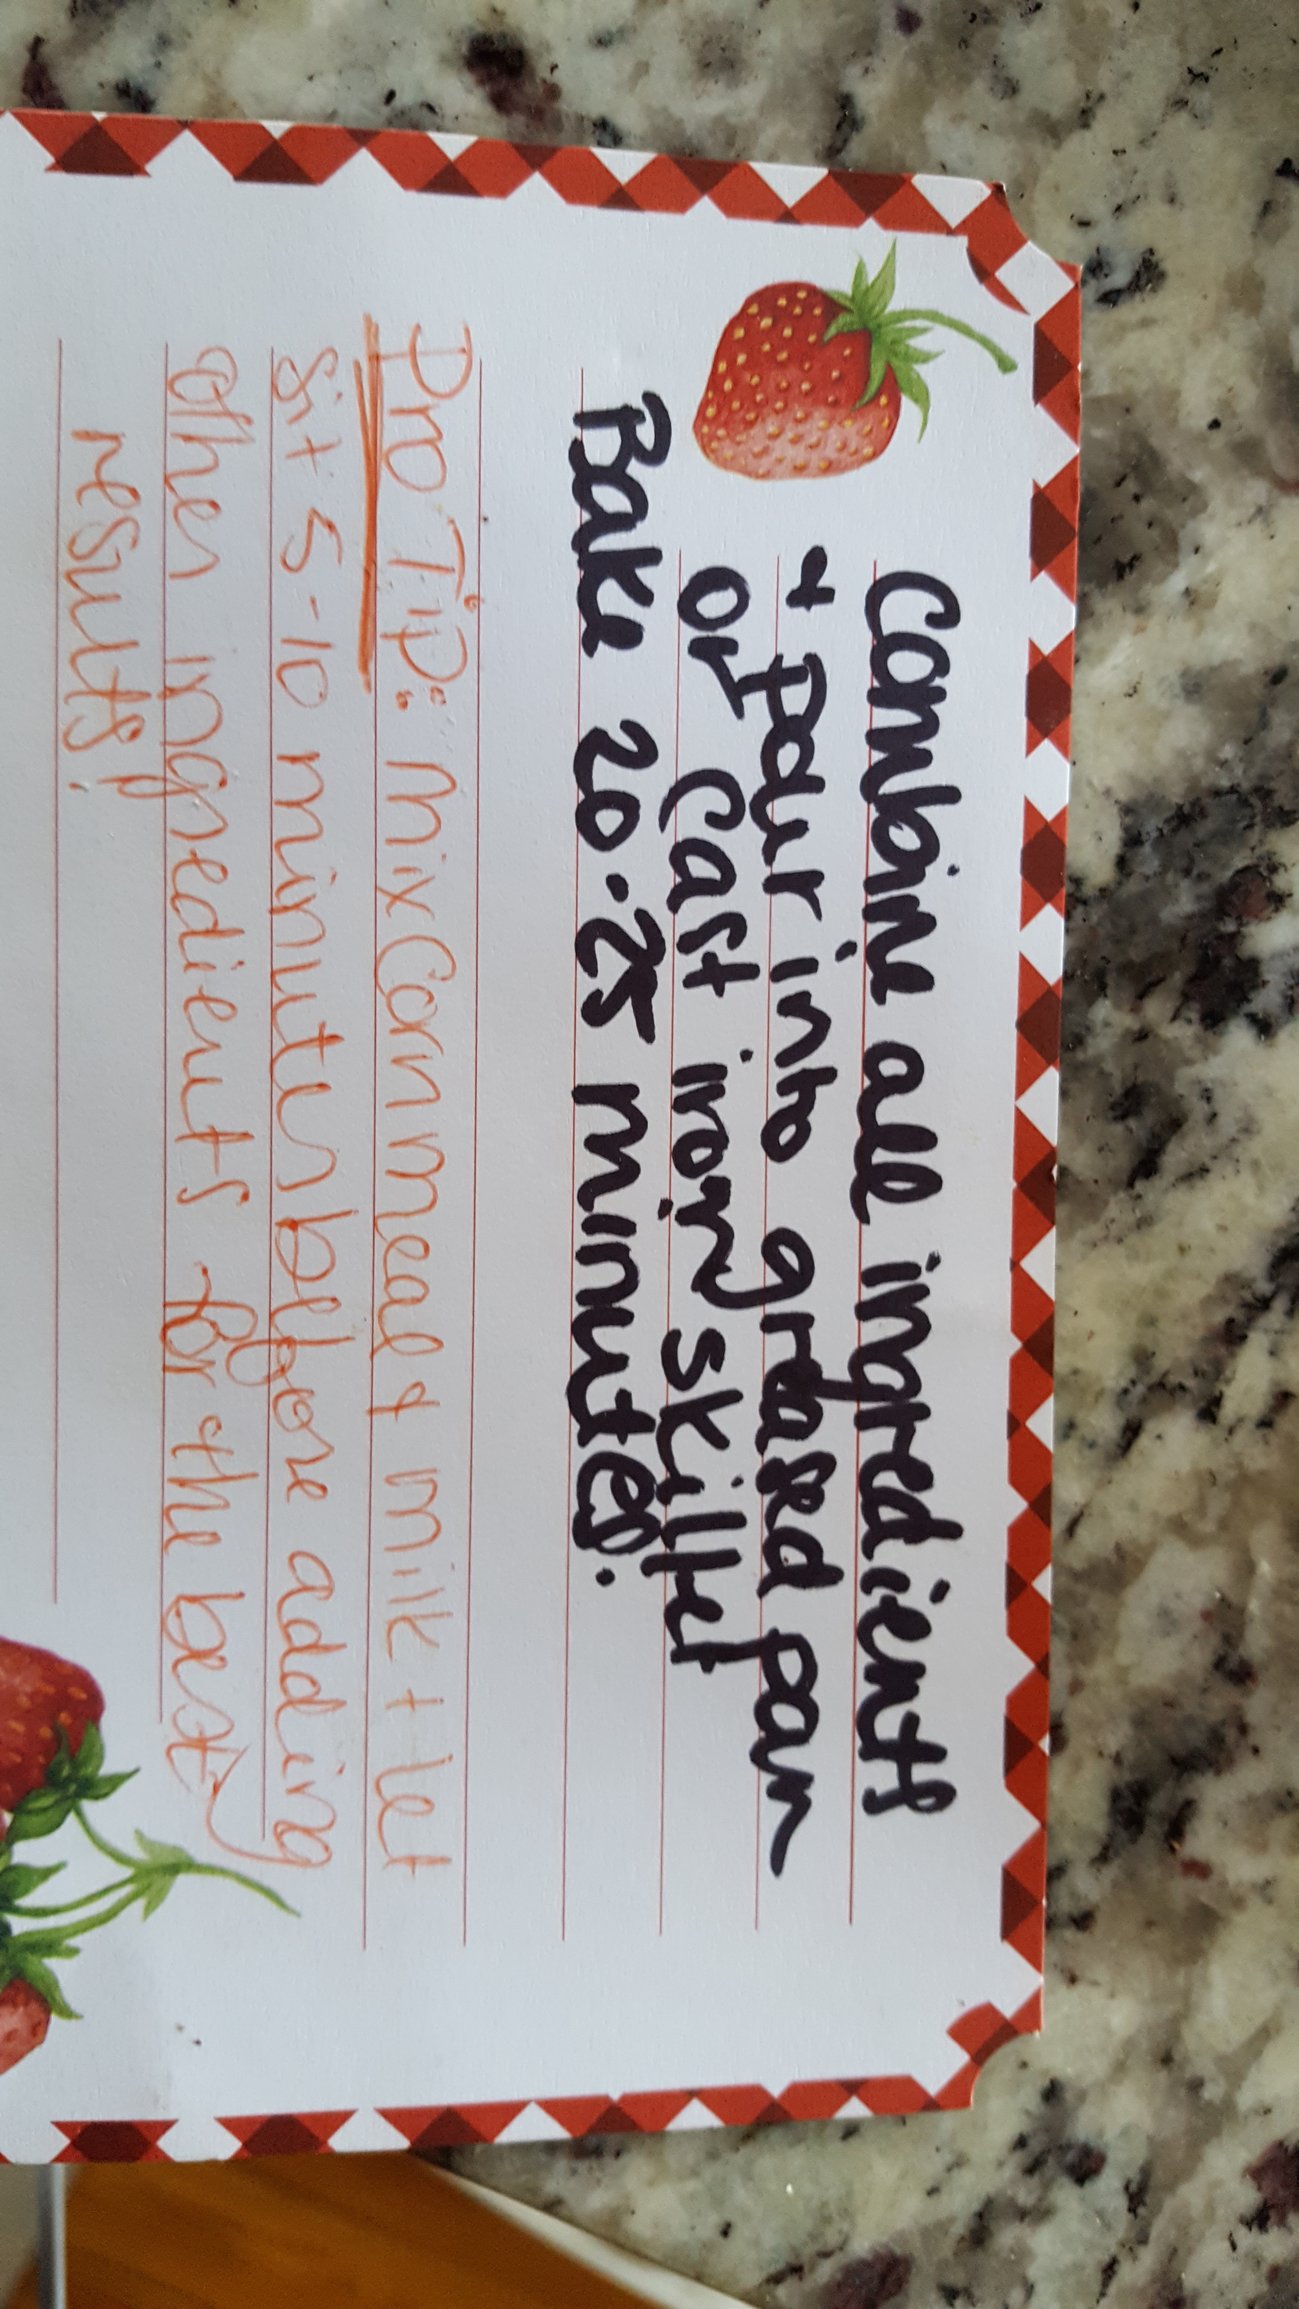 Combine all ingredients
+ pour into greased pan
or cast iron skillet
Bake 20-25 minutes.
Pro Tip: Mix Cornmeal & milk + let
sit 5-10 minutes before adding
other ingredients for the best
results!